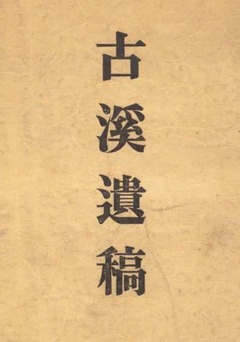 古溪遺稿